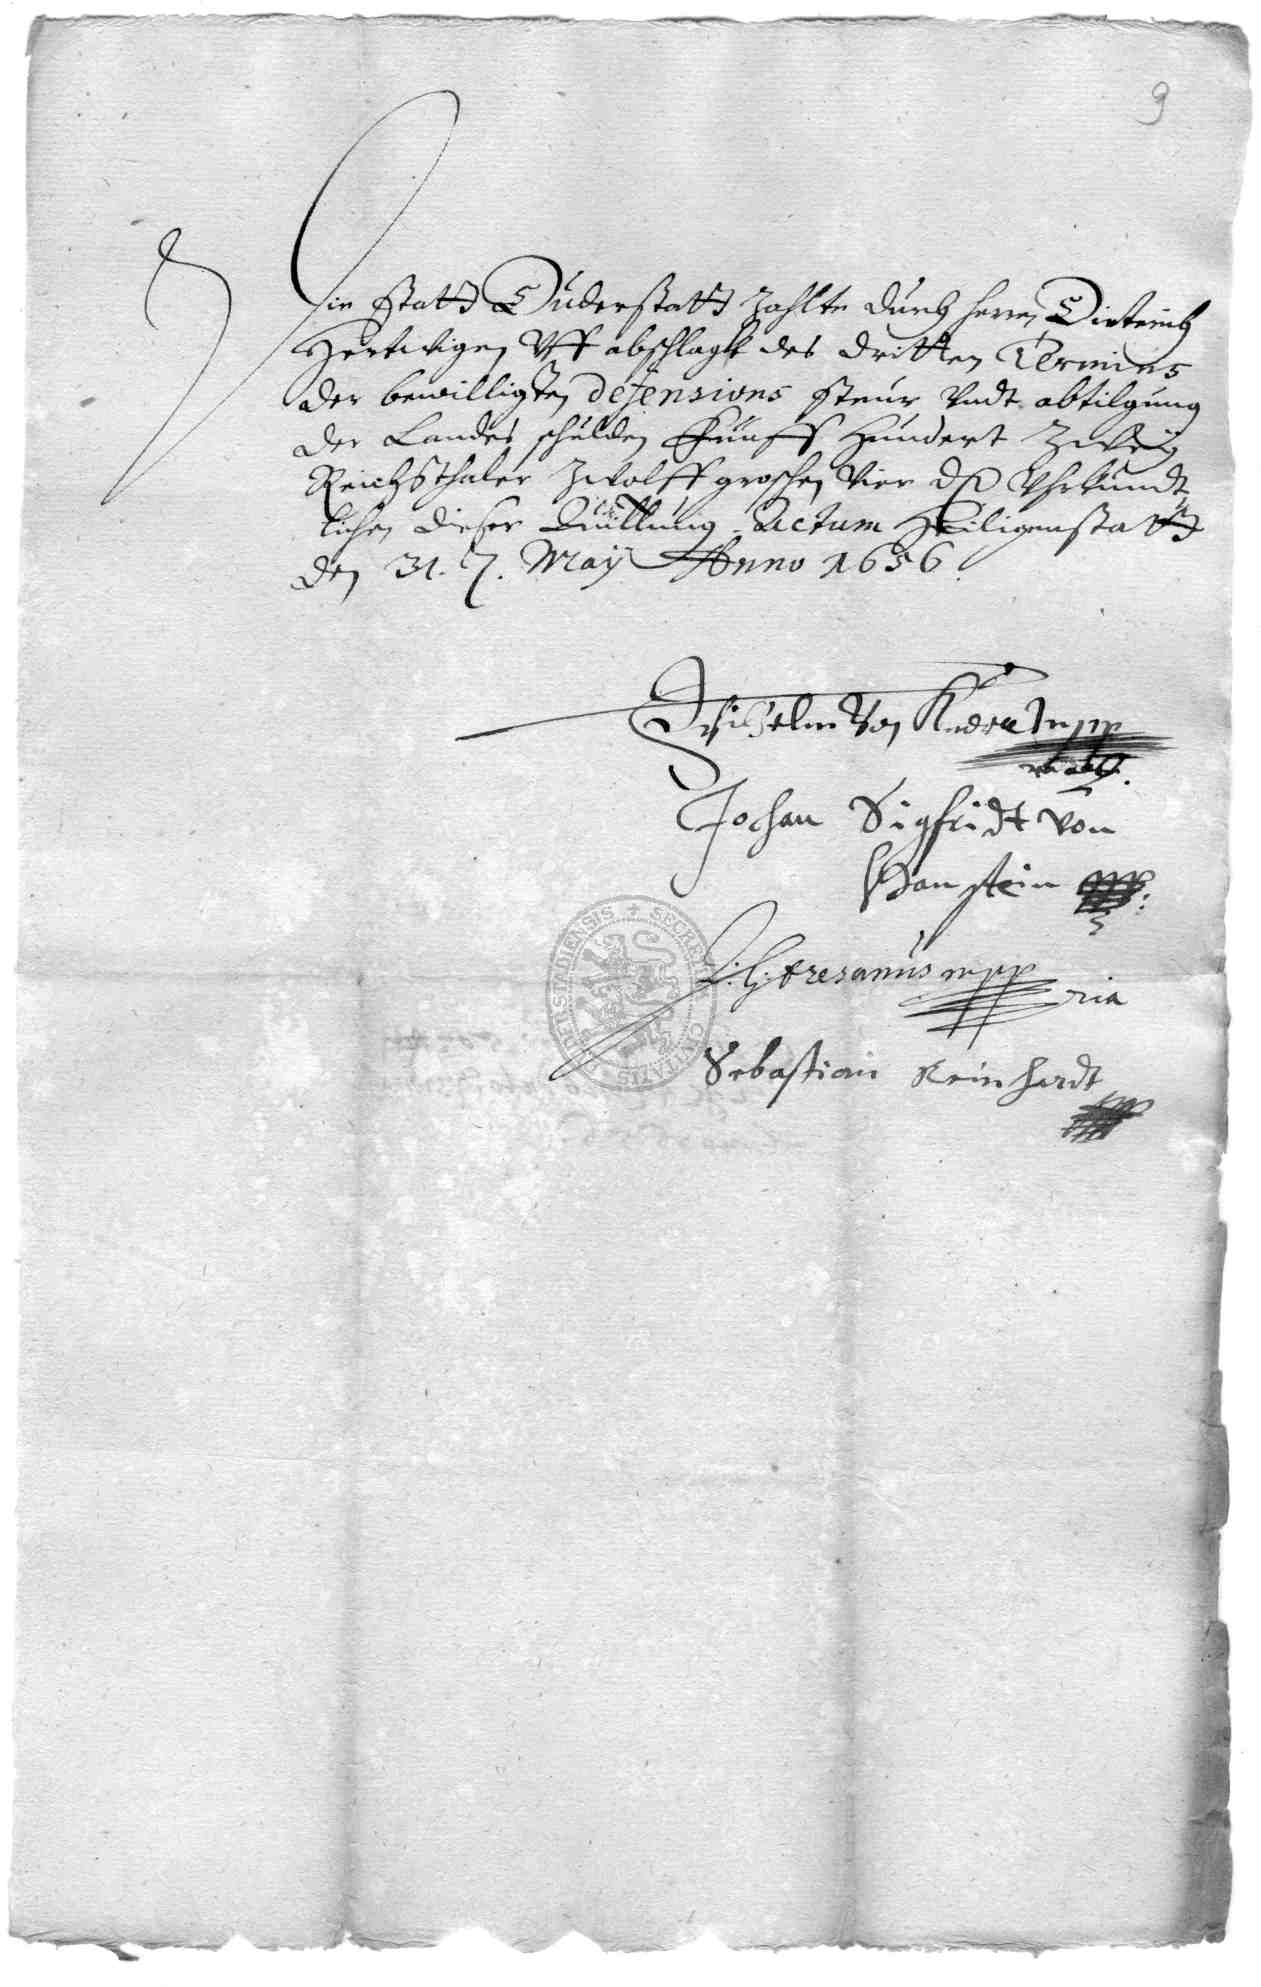 9
Die Statt Duderstatt zahlte durch herren Dieterich
Hertwigen Uff abschlagk des dritten Termines
der bewilligten defensions steur Undt abtilgung
der Landes schulden Funff Hundert Zwey
Reichsthaler Zwolff groschen Vier dß Uhrkundt
lichen dieser Quittung. Actum Heiligenstatt
den 31. May Anno 1656.
Wilhelm Von mpp
Johan Sigfridt von
Hanstein mpp
mpp
ria
Sebastian Reinhardt
mpp
SECRETUM CIVITATIS DUDERSTADIENSIS